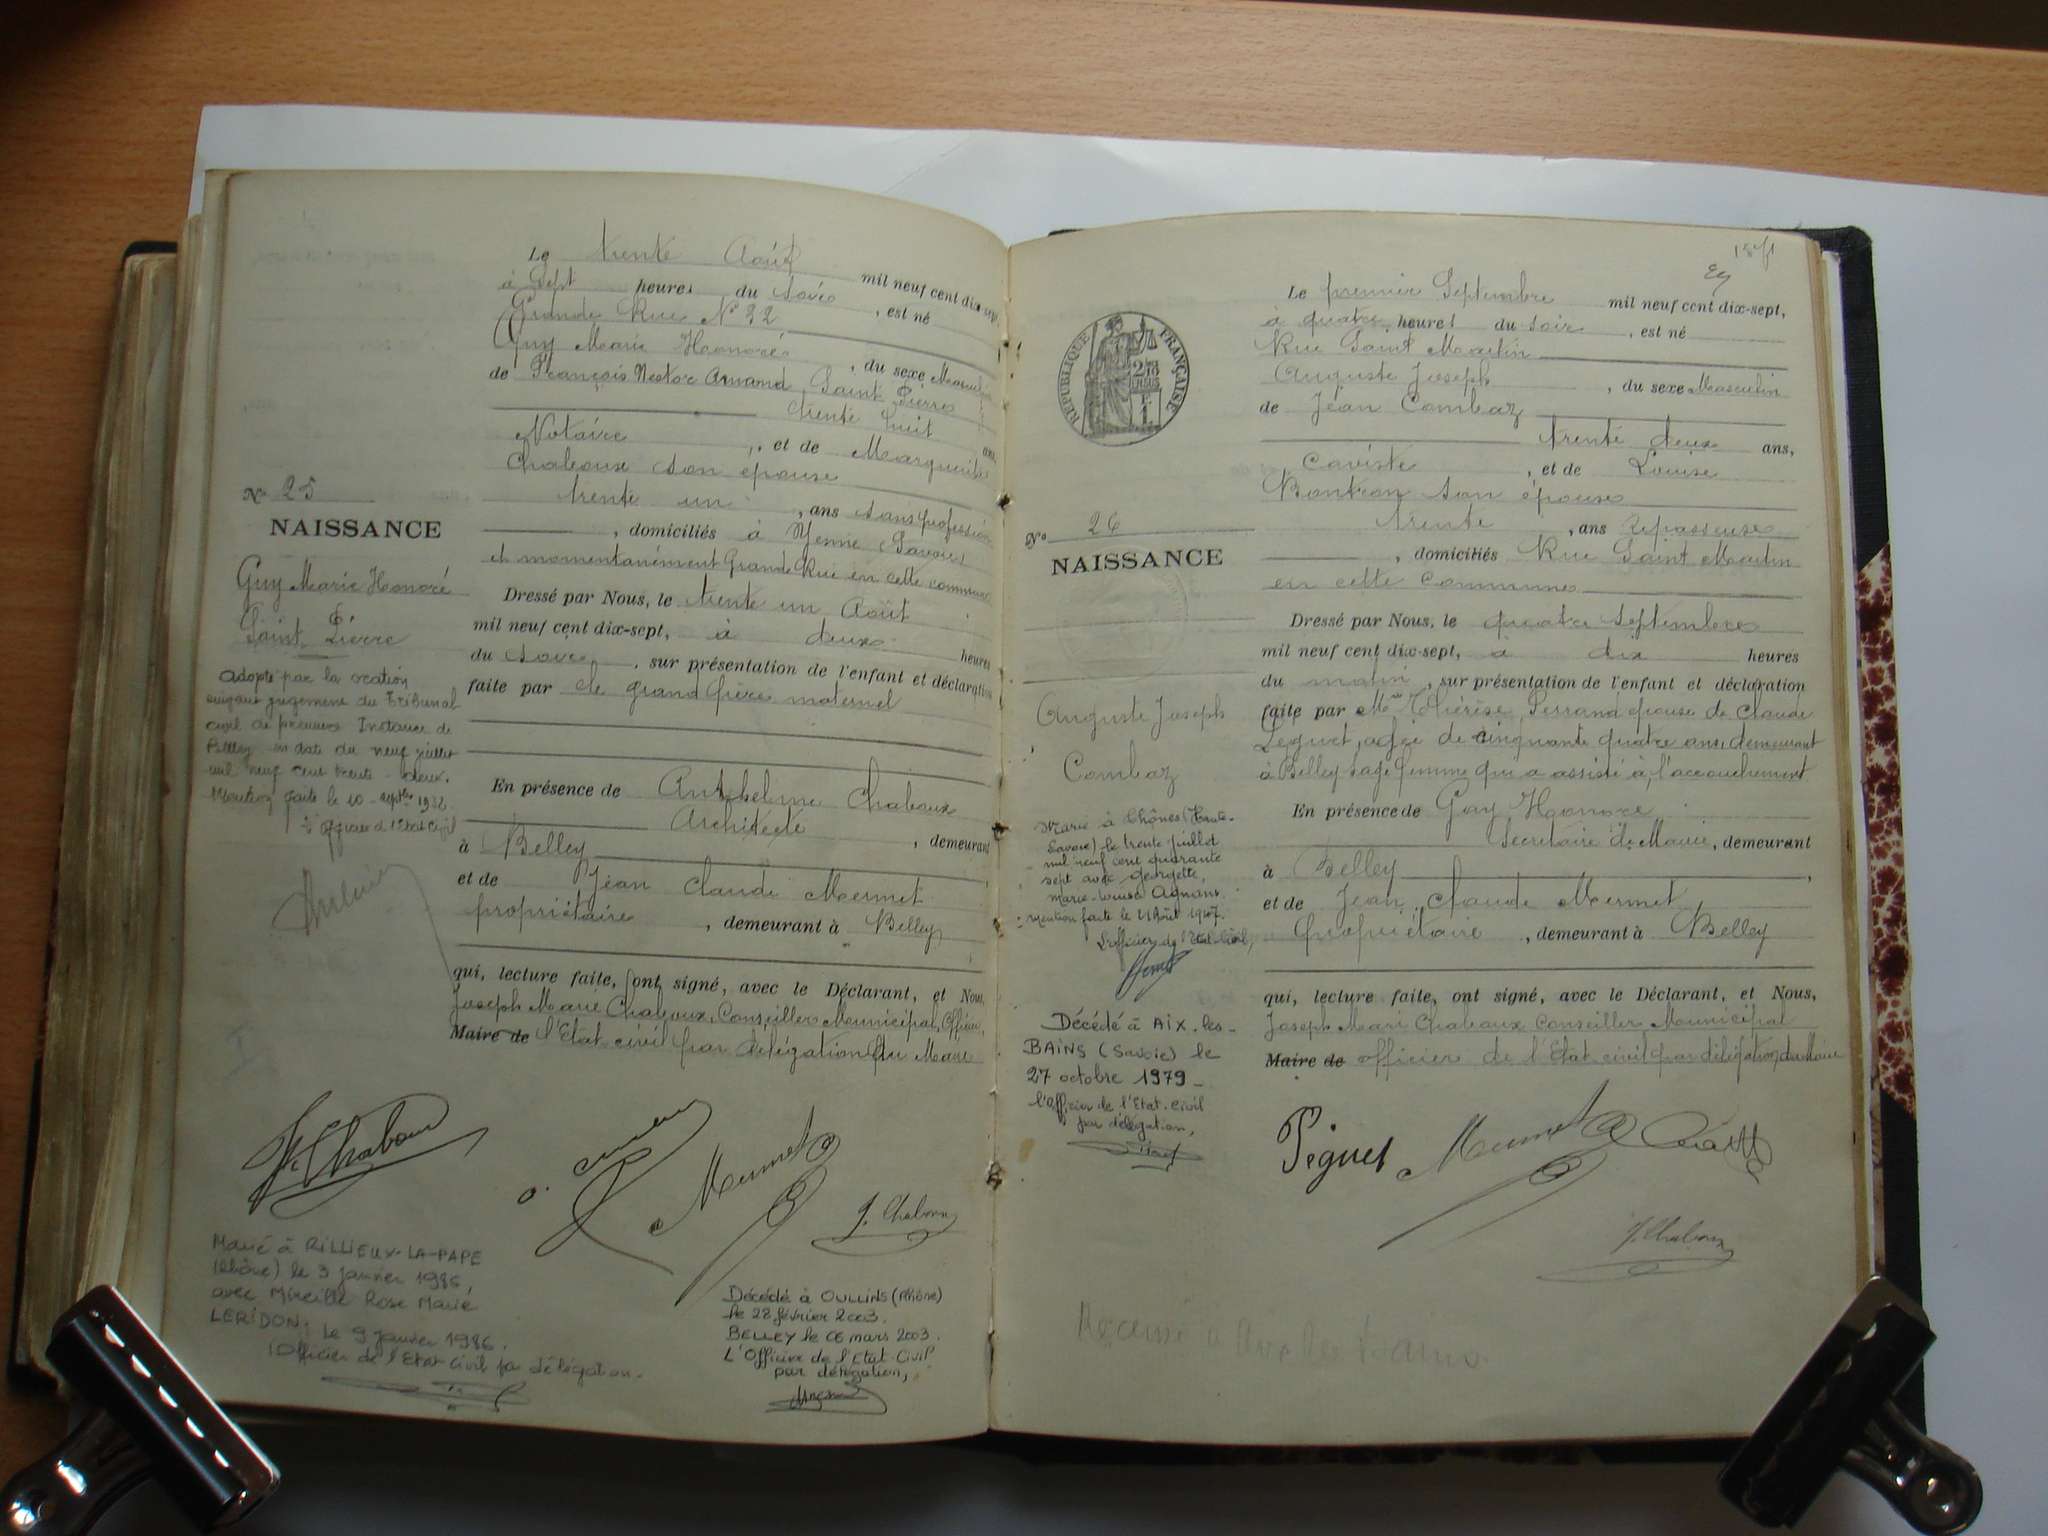 Le trente Août mil neuf cent dix-sept
à Sept heures du soir, est né
Grande Rue No 32
Guy Marie Honoré, du sexe Masculin
de François Nestor Amand Saint Pierre
trente huit ans,
Notaire, et de Marguerite
Chaboux son épouse
trente un, ans sans profession
, domiciliés à Yenne (Savoie)
et momentanément Grande Rue en cette commune
No 25
NAISSANCE
Guy Marie Honoré
Saint Pierre
Adopté par la nation
suivant jugement du Tribunal
civil de première Instance de
Belley en date du neuf juillet
mil neuf cent trente-deux.
Mention faite le 10 septbre 1932.
L'officier d'Etat Civil
Dressé par Nous, le trente un Août
mil neuf cent dix-sept, à deux heures
du soir, sur présentation de l'enfant et déclaration
faite par le grand père maternel
En présence de Anthelme Chaboux
Architecte, demeurant
à Belley
et de Jean Claude Mermet
propriétaire, demeurant à Belley
qui, lecture faite, ont signé, avec le Déclarant, et Nous,
Joseph Marie Chaboux, Conseiller Municipal, Officier
Maire de l'Etat civil par délégation du Maire
Chaboux
Mermet
J. Chaboux
Marié à RILLIEUX-LA-PAPE
(Rhône) le 3 janvier 1986,
avec Mireille Rose Marie
LERIDON. Le 9 janvier 1986.
L'Officier de l'Etat-Civil par délégation.
Décédé à OULLINS (Rhône)
le 28 février 2003.
BELLEY le 06 mars 2003.
L'Officier de l'Etat-Civil
par délégation,
Le premier Septembre mil neuf cent dix-sept,
à quatre heures du soir, est né
Rue Saint Martin
Auguste Joseph, du sexe Masculin
de Jean Combaz
trente deux ans,
caviste, et de Louise
Bontron son épouse
trente, ans Repasseuse
, domiciliés Rue Saint Martin
en cette commune
REPUBLIQUE FRANÇAISE
No 26
NAISSANCE
Auguste Joseph
Combaz
Marié à Thônes (Haute-
Savoie) le trente juillet
mil neuf cent quarante
sept avec Georgette,
Marie-Louise Agnans.
Mention faite le 4 Août 1947.
L'officier de l'Etat Civil,
Décédé à AIX-les-
BAINS (Savoie) le
27 octobre 1979
L'Officier de l'Etat-Civil
par délégation,
Dressé par Nous, le quatre Septembre
mil neuf cent dix-sept, à dix heures
du matin, sur présentation de l'enfant et déclaration
faite par Mme Thérèse Ferrand épouse de Claude
Peguet, agée de cinquante quatre ans, demeurant
à Belley sage femme qui a assisté à l'accouchement
En présence de Gay Honoré
Secrétaire de Mairie, demeurant
à Belley,
et de Jean Claude Mermet
propriétaire, demeurant à Belley
qui, lecture faite, ont signé, avec le Déclarant, et Nous,
Joseph Mari Chaboux Conseiller Municipal
Maire de officier de l'Etat civil par délégation du Maire
Péguet Mermet
J. Chaboux
Décédé à Aix les Bains.